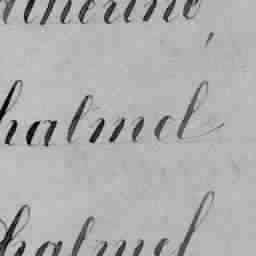 atherine,
halmel
halmel